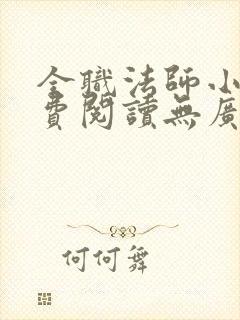 全職法師小
費閱讀無廣
何何舞